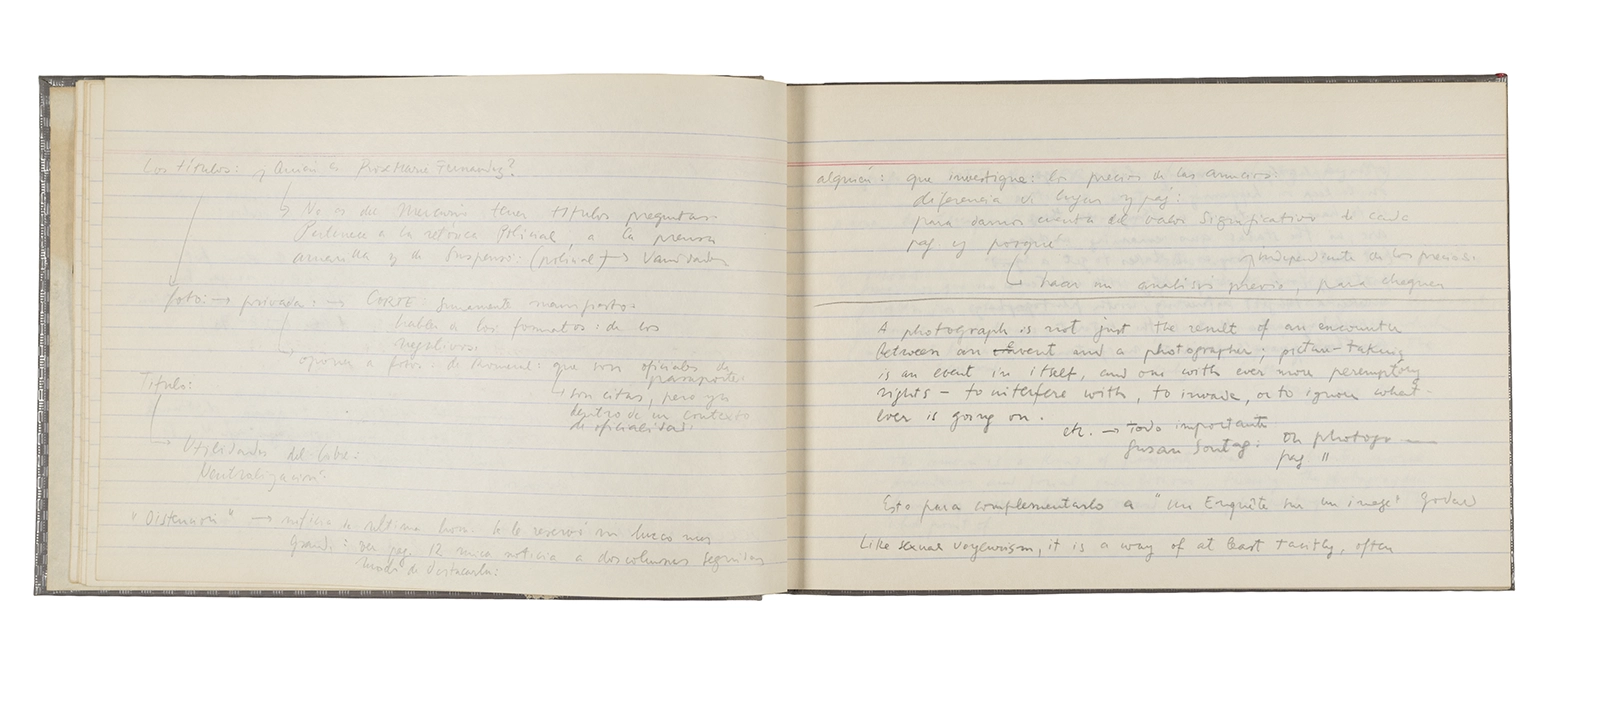 Los títulos: ¿Quién es Rose Marie Fernandez?
No es del Mercurio tener títulos preguntas.
Pertenece a la retórica Policial, a la prensa
amarilla y de suspenso: (policial) → Vanidades
foto: → privada: → CORTE: sumamente
habla a los formatos: de los
negativos.
oponer a fotos de : que son oficiales de
pasaporte:
son citas, pero ya
dentro de un contexto
de oficialidad.
Título:
Utilidades del Cobre:
Neutralización:
"Distensión" → noticia de última hora. Se le reservó un hueco más
grande: ver pag. 12 única noticia a dos columnas seguidas
modo de destacarla:
alguien: que investigue: los precios de los anuncios:
diferencia de lugar y pág:
para darnos cuenta del valor significativo de cada
pag. y porqué
y independiente de los precios.
hacer un análisis previo, para chequear
A photograph is not just the result of an encounter
Between an event and a photographer; picture-taking
is an event in itself, and one with ever more peremptory
rights – to interfere with, to invade, or to ignore what-
ever is going on.
etc. → todo importante
Susan Sontag: On photogr
pag "
Esto para complementarlo a "un Enquête sur un image" Godard
Like sexual voyeurism, it is a way of at least tacitly, often